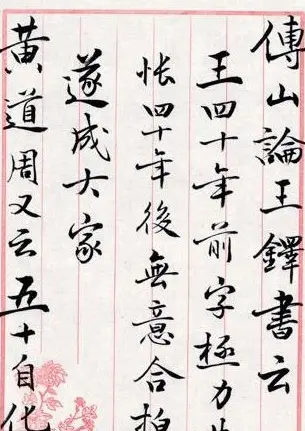 傅山論王鐸書云
王四十年前字極力
四十年後無意合拍
遂成大家
黄道周又云五十自化